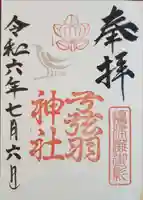 奉拝
弓弦羽
神社
令和六年七月六日